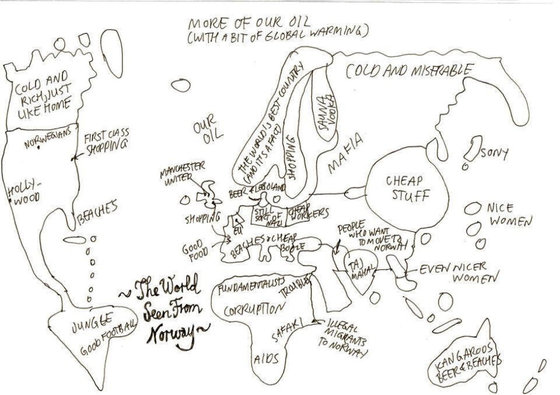 MORE OF OUR OIL
(WITH A BIT OF GLOBAL WARMING)
COLD AND
RICH, JUST
LIKE HOME
NORWEGIANS
FIRST CLASS
SHOPPING
HOLLY-
WOOD
BEACHES
JUNGLE
GOOD FOOTBALL
~The World
Seen From
Norway~
OUR
OIL
THE WORLD'S BEST COUNTRY
(AND IT'S A FACT)
SHOPPING
SAUNA
VODKA
COLD AND MISERABLE
MAFIA
MANCHESTER
UNITED
BEER
LEGOLAND
SHOPPING
EU
STILL
SORT OF
NAZI
CHEAP
WORKERS
GOOD
FOOD
BEACHES & CHEAP
BOOZE
PEOPLE
WHO WANT
TO MOVE TO
NORWAY
CHEAP
STUFF
SONY
NICE
WOMEN
TAJ
MAHAL
EVEN NICER
WOMEN
FUNDAMENTALISTS
TROUBLE
CORRUPTION
SAFARI
AIDS
ILLEGAL
MIGRANTS
TO NORWAY
KANGAROOS
BEER & BEACHES